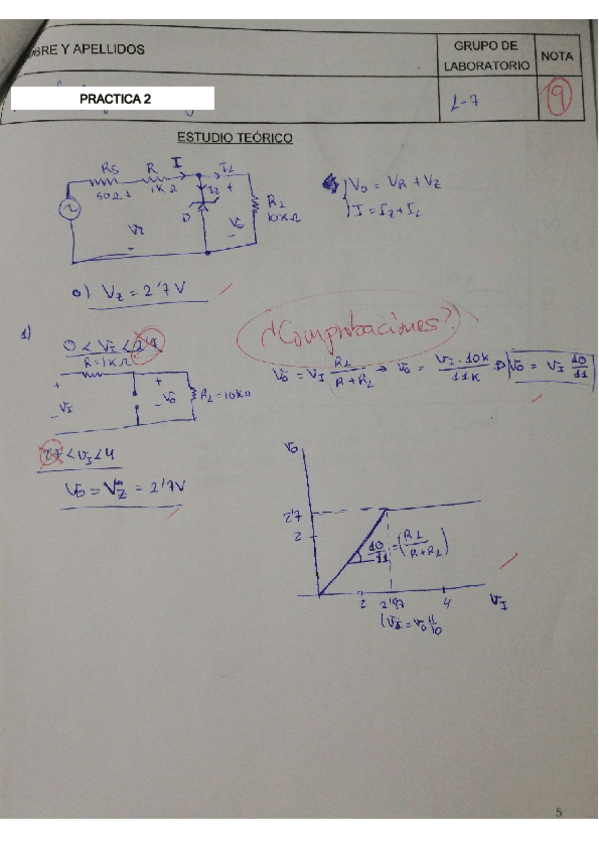 OBRE Y APELLIDOS
GRUPO DE LABORATORIO
NOTA
PRACTICA 2
L-7
9
ESTUDIO TEÓRICO
RS
R
I
IL
50Ω
1KΩ
IZ
+
D
RL
10KΩ
VI
Vo
-
-
Vo = VR + VZ
I = IZ + IL
0) VZ = 2'7V
¿Comprobaciones?
1)
0 < VI < 2'7
R = 1KΩ
+
+
VI
Vo
RL = 10KΩ
-
-
Vo = VI RL / R + RL → Vo = VI · 10K / 11K ⇒ Vo = VI 10 / 11
2'7 < VI < 4
Vo = VZ = 2'7V
Vo
2'7
2
10/11 = (RL / R + RL)
2
2'97
4
VI
VI = Vo 11/10
5